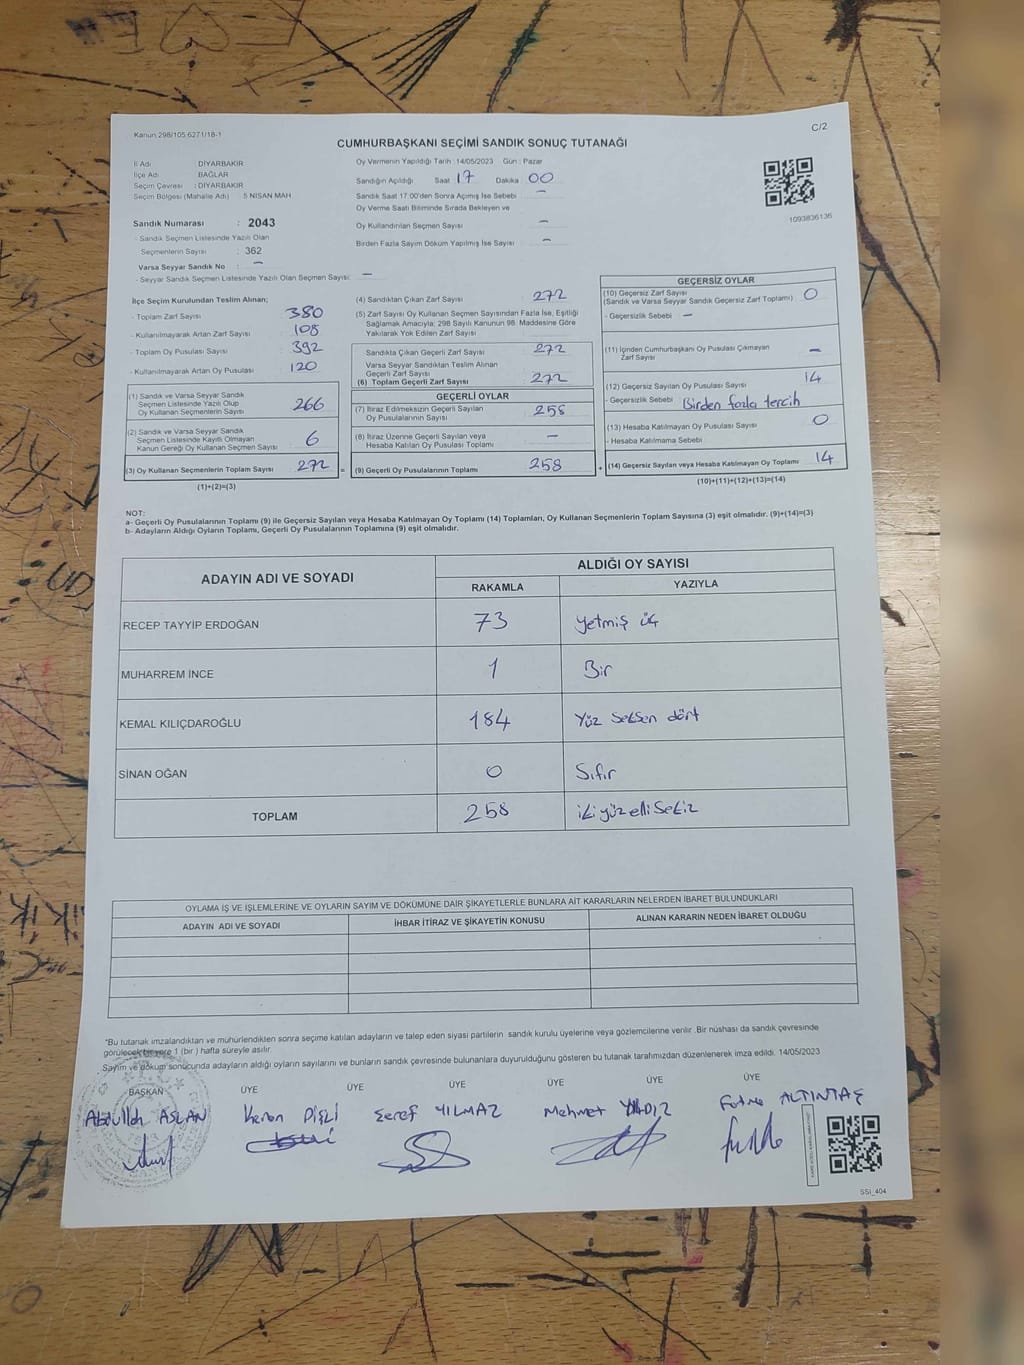 Kanun:298/105:6271/18-1
C/2
CUMHURBAŞKANI SEÇİMİ SANDIK SONUÇ TUTANAĞI
İl Adı DİYARBAKIR
İlçe Adı BAĞLAR
Seçim Çevresi : DİYARBAKIR
Seçim Bölgesi (Mahalle Adı) 5 NİSAN MAH
Oy Vermenin Yapıldığı Tarih : 14/05/2023 Gün : Pazar
Sandığın Açıldığı Saat 17 Dakika 00
Sandık Saat 17:00'den Sonra Açımış İse Sebebi –
Oy Verme Saati Bitiminde Sırada Bekleyen ve
Oy Kullandırılan Seçmen Sayısı –
Birden Fazla Sayım Döküm Yapılmış İse Sayısı –
1093836136
Sandık Numarası : 2043
- Sandık Seçmen Listesinde Yazılı Olan
Seçmenlerin Sayısı : 362
Varsa Seyyar Sandık No : –
- Seyyar Sandık Seçmen Listesinde Yazılı Olan Seçmen Sayısı: –
İlçe Seçim Kurulundan Teslim Alınan;
- Toplam Zarf Sayısı 380
- Kullanılmayarak Artan Zarf Sayısı 108
- Toplam Oy Pusulası Sayısı 392
- Kullanılmayarak Artan Oy Pusulası 120
(1) Sandık ve Varsa Seyyar Sandık
Seçmen Listesinde Yazılı Olup
Oy Kullanan Seçmenlerin Sayısı 266
(2) Sandık ve Varsa Seyyar Sandık
Seçmen Listesinde Kayıtlı Olmayan
Kanun Gereği Oy Kullanan Seçmen Sayısı 6
(3) Oy Kullanan Seçmenlerin Toplam Sayısı 272 =
(1)+(2)=(3)
(4) Sandıktan Çıkan Zarf Sayısı 272
(5) Zarf Sayısı Oy Kullanan Seçmen Sayısından Fazla İse, Eşitliği
Sağlamak Amacıyla; 298 Sayılı Kanunun 98. Maddesine Göre
Yakılarak Yok Edilen Zarf Sayısı
Sandıkta Çıkan Geçerli Zarf Sayısı 272
Varsa Seyyar Sandıktan Teslim Alınan
Geçerli Zarf Sayısı
(6) Toplam Geçerli Zarf Sayısı 272
GEÇERLİ OYLAR
(7) İtiraz Edilmeksizin Geçerli Sayılan
Oy Pusulalarının Sayısı 258
(8) İtiraz Üzerine Geçerli Sayılan veya
Hesaba Katılan Oy Pusulası Toplamı –
(9) Geçerli Oy Pusulalarının Toplamı 258 +
GEÇERSİZ OYLAR
(10) Geçersiz Zarf Sayısı
(Sandık ve Varsa Seyyar Sandık Geçersiz Zarf Toplamı) 0
- Geçersizlik Sebebi –
(11) İçinden Cumhurbaşkanı Oy Pusulası Çıkmayan
Zarf Sayısı –
(12) Geçersiz Sayılan Oy Pusulası Sayısı 14
- Geçersizlik Sebebi Birden fazla tercih
(13) Hesaba Katılmayan Oy Pusulası Sayısı 0
- Hesaba Katılmama Sebebi
(14) Geçersiz Sayılan veya Hesaba Katılmayan Oy Toplamı 14
(10)+(11)+(12)+(13)=(14)
NOT:
a- Geçerli Oy Pusulalarının Toplamı (9) ile Geçersiz Sayılan veya Hesaba Katılmayan Oy Toplamı (14) Toplamları, Oy Kullanan Seçmenlerin Toplam Sayısına (3) eşit olmalıdır. (9)+(14)=(3)
b- Adayların Aldığı Oyların Toplamı, Geçerli Oy Pusulalarının Toplamına (9) eşit olmalıdır.
ADAYIN ADI VE SOYADI ALDIĞI OY SAYISI
RAKAMLA YAZIYLA
RECEP TAYYİP ERDOĞAN 73 Yetmiş üç
MUHARREM İNCE 1 Bir
KEMAL KILIÇDAROĞLU 184 Yüz Seksen dört
SİNAN OĞAN 0 Sıfır
TOPLAM 258 iki yüz elli Sekiz
OYLAMA İŞ VE İŞLEMLERİNE VE OYLARIN SAYIM VE DÖKÜMÜNE DAİR ŞİKAYETLERLE BUNLARA AİT KARARLARIN NELERDEN İBARET BULUNDUKLARI
ADAYIN ADI VE SOYADI İHBAR İTİRAZ VE ŞİKAYETİN KONUSU ALINAN KARARIN NEDEN İBARET OLDUĞU
"Bu tutanak imzalandıktan ve mühürlendikten sonra seçime katılan adayların ve talep eden siyasi partilerin sandık kurulu üyelerine veya gözlemcilerine verilir .Bir nüshası da sandık çevresinde
görülecek bir yere 1 (bir ) hafta süreyle asılır.
Sayım ve döküm sonucunda adayların aldığı oyların sayılarını ve bunların sandık çevresinde bulunanlara duyurulduğunu gösteren bu tutanak tarafımızdan düzenlenerek imza edildi. 14/05/2023
BAŞKAN ÜYE ÜYE ÜYE ÜYE ÜYE ÜYE
Abdullah ASLAN Kenan Dişli Şeref YILMAZ Mehmet YILDIZ Fatma ALTINTAŞ
SSİ_404